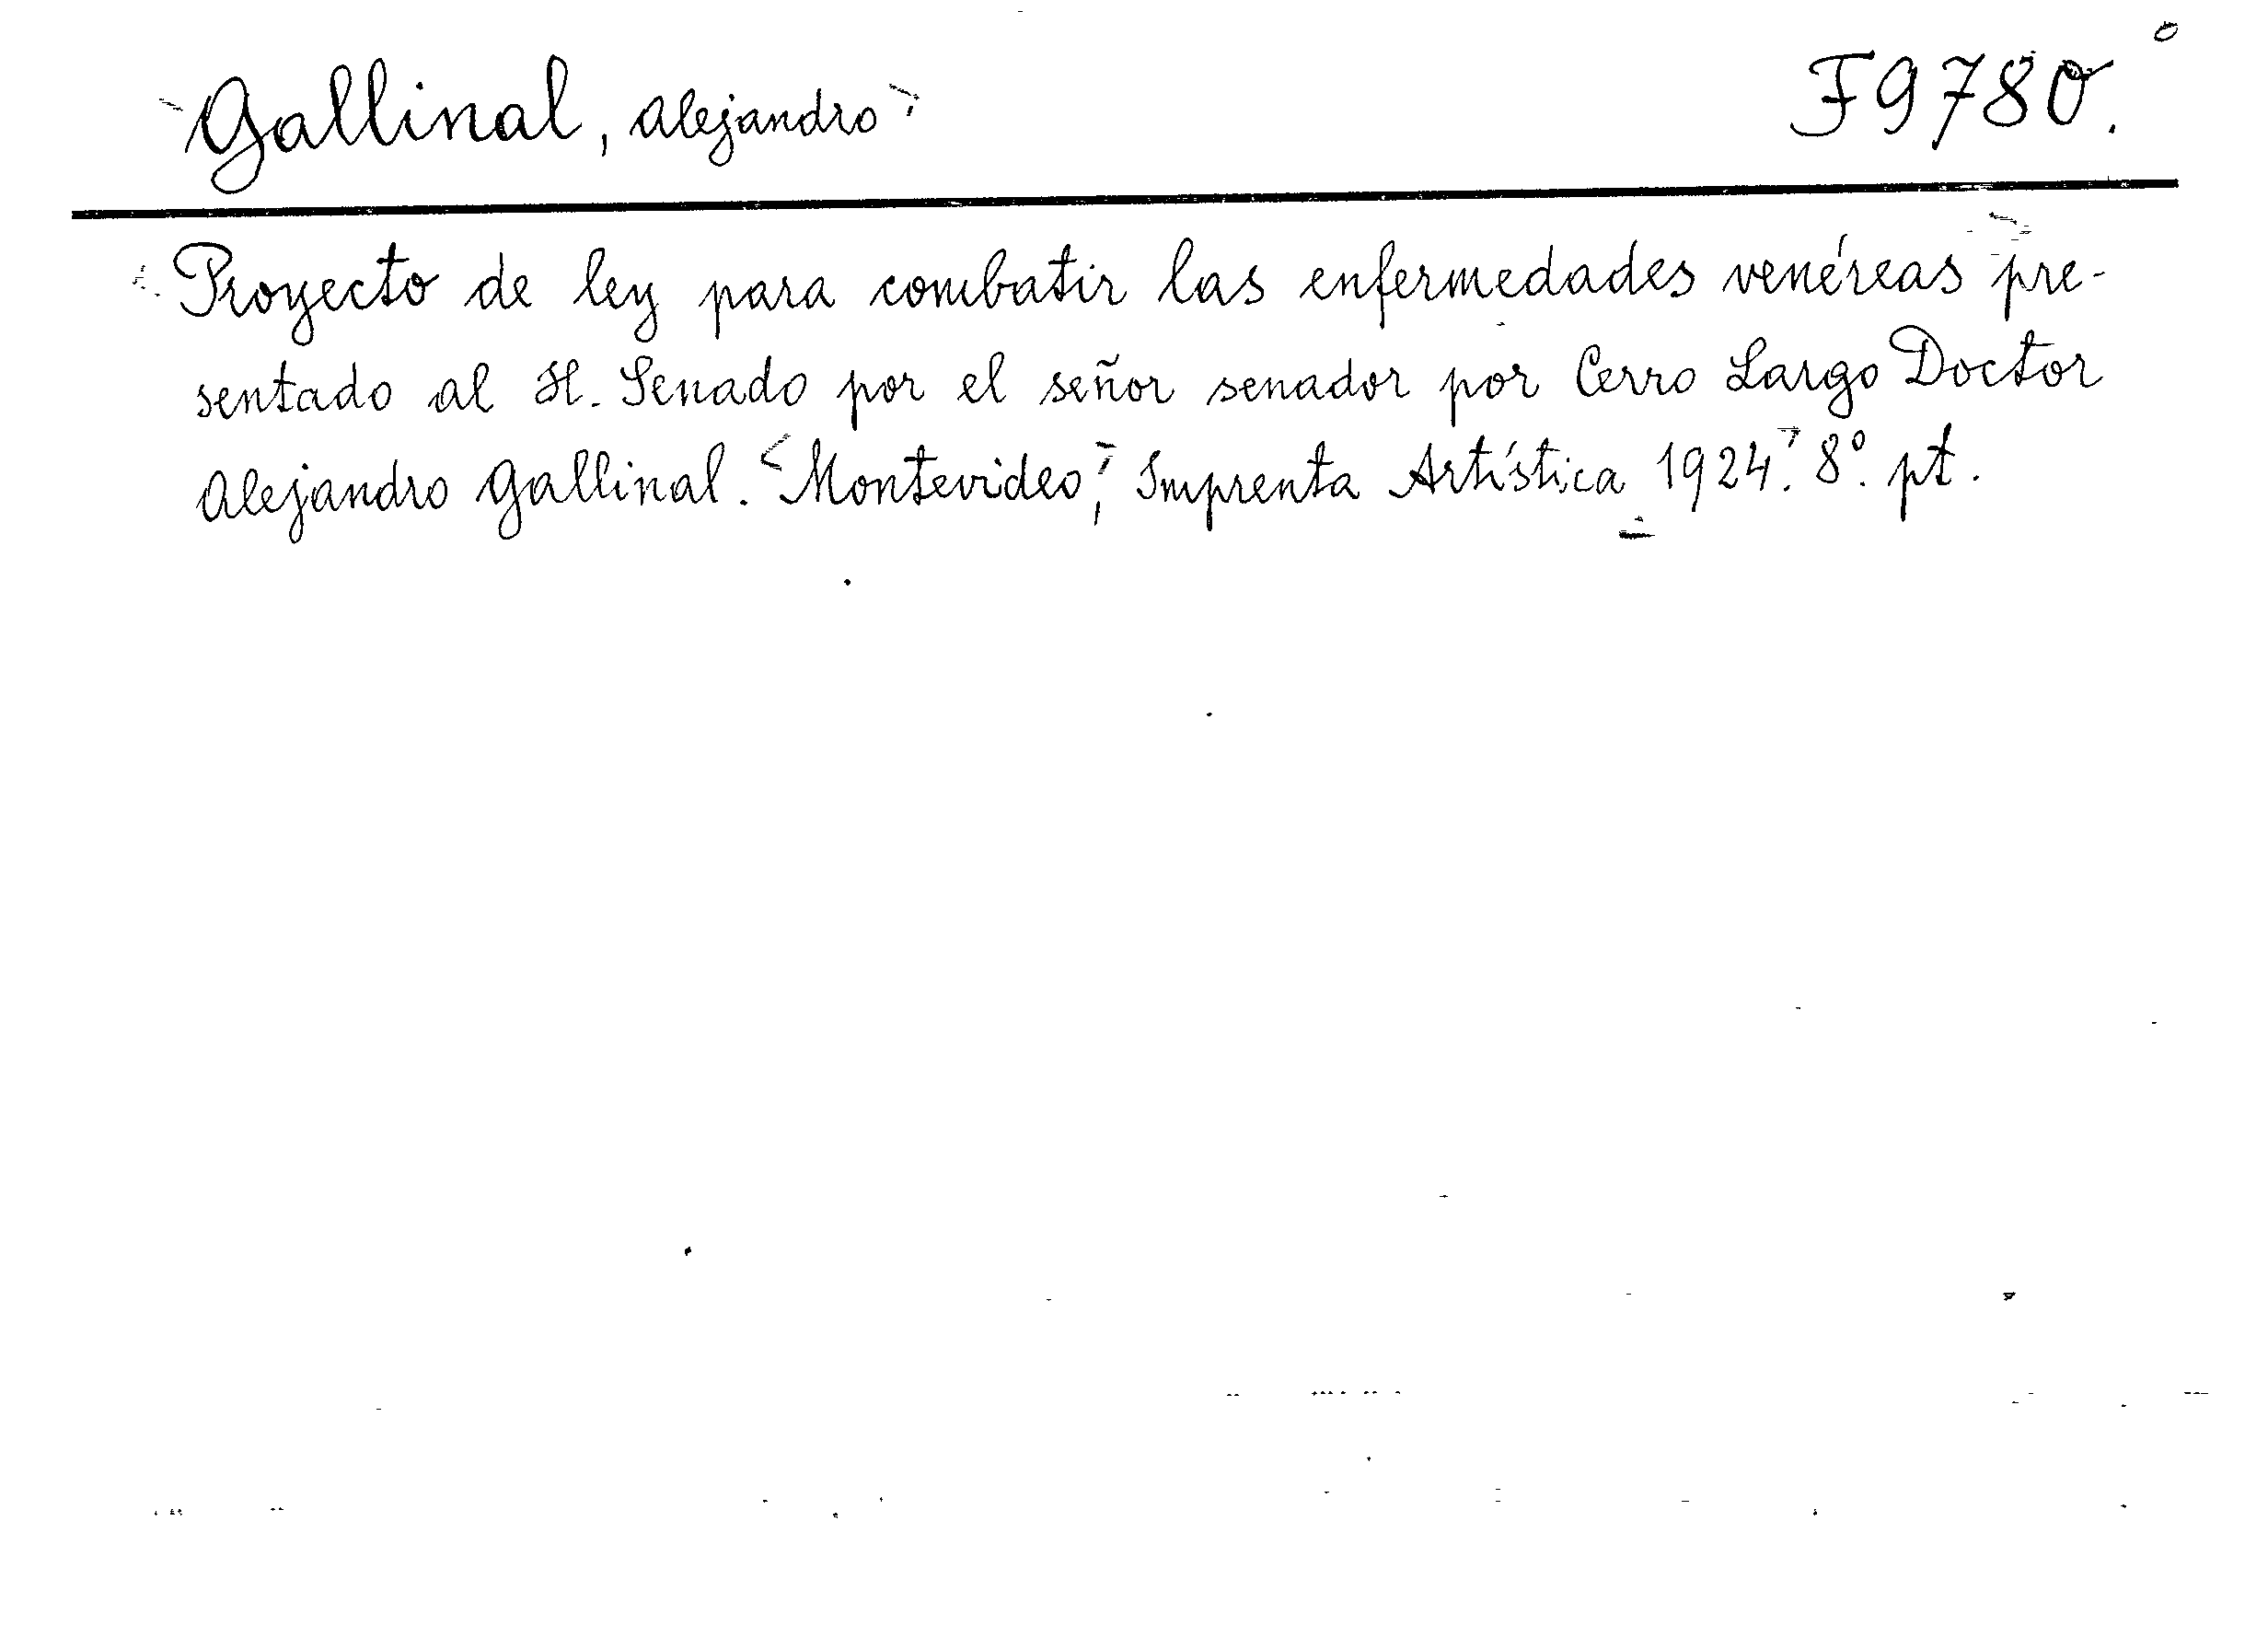 Gallinal, Alejandro F9780.
Proyecto de ley para combatir las enfermedades venéreas pre-
sentado al H. Senado por el señor senador por Cerro Largo Doctor
Alejandro Gallinal. Montevideo, Imprenta Artística 1924. 8º. pt.